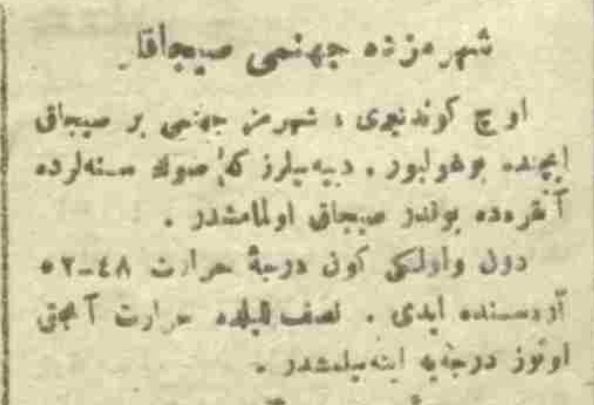 شهرمزده جهنمی صیجاقلر
اوچ کوندنبری ، شهرمز جهنمی بر صیجاق
ایچنده بوغولیور . دییه بیلرز که صوك سنه‌لرده
آنقره‌ده بوندر صیجاق اولمامشدر .
دون واولکی کون درجهٔ حرارت ٤٨-٥٢
آره‌سنده ایدی . نصف اللیلده حرارت آنجق
اوتوز درجه‌یه اینه‌بیلمشدر .